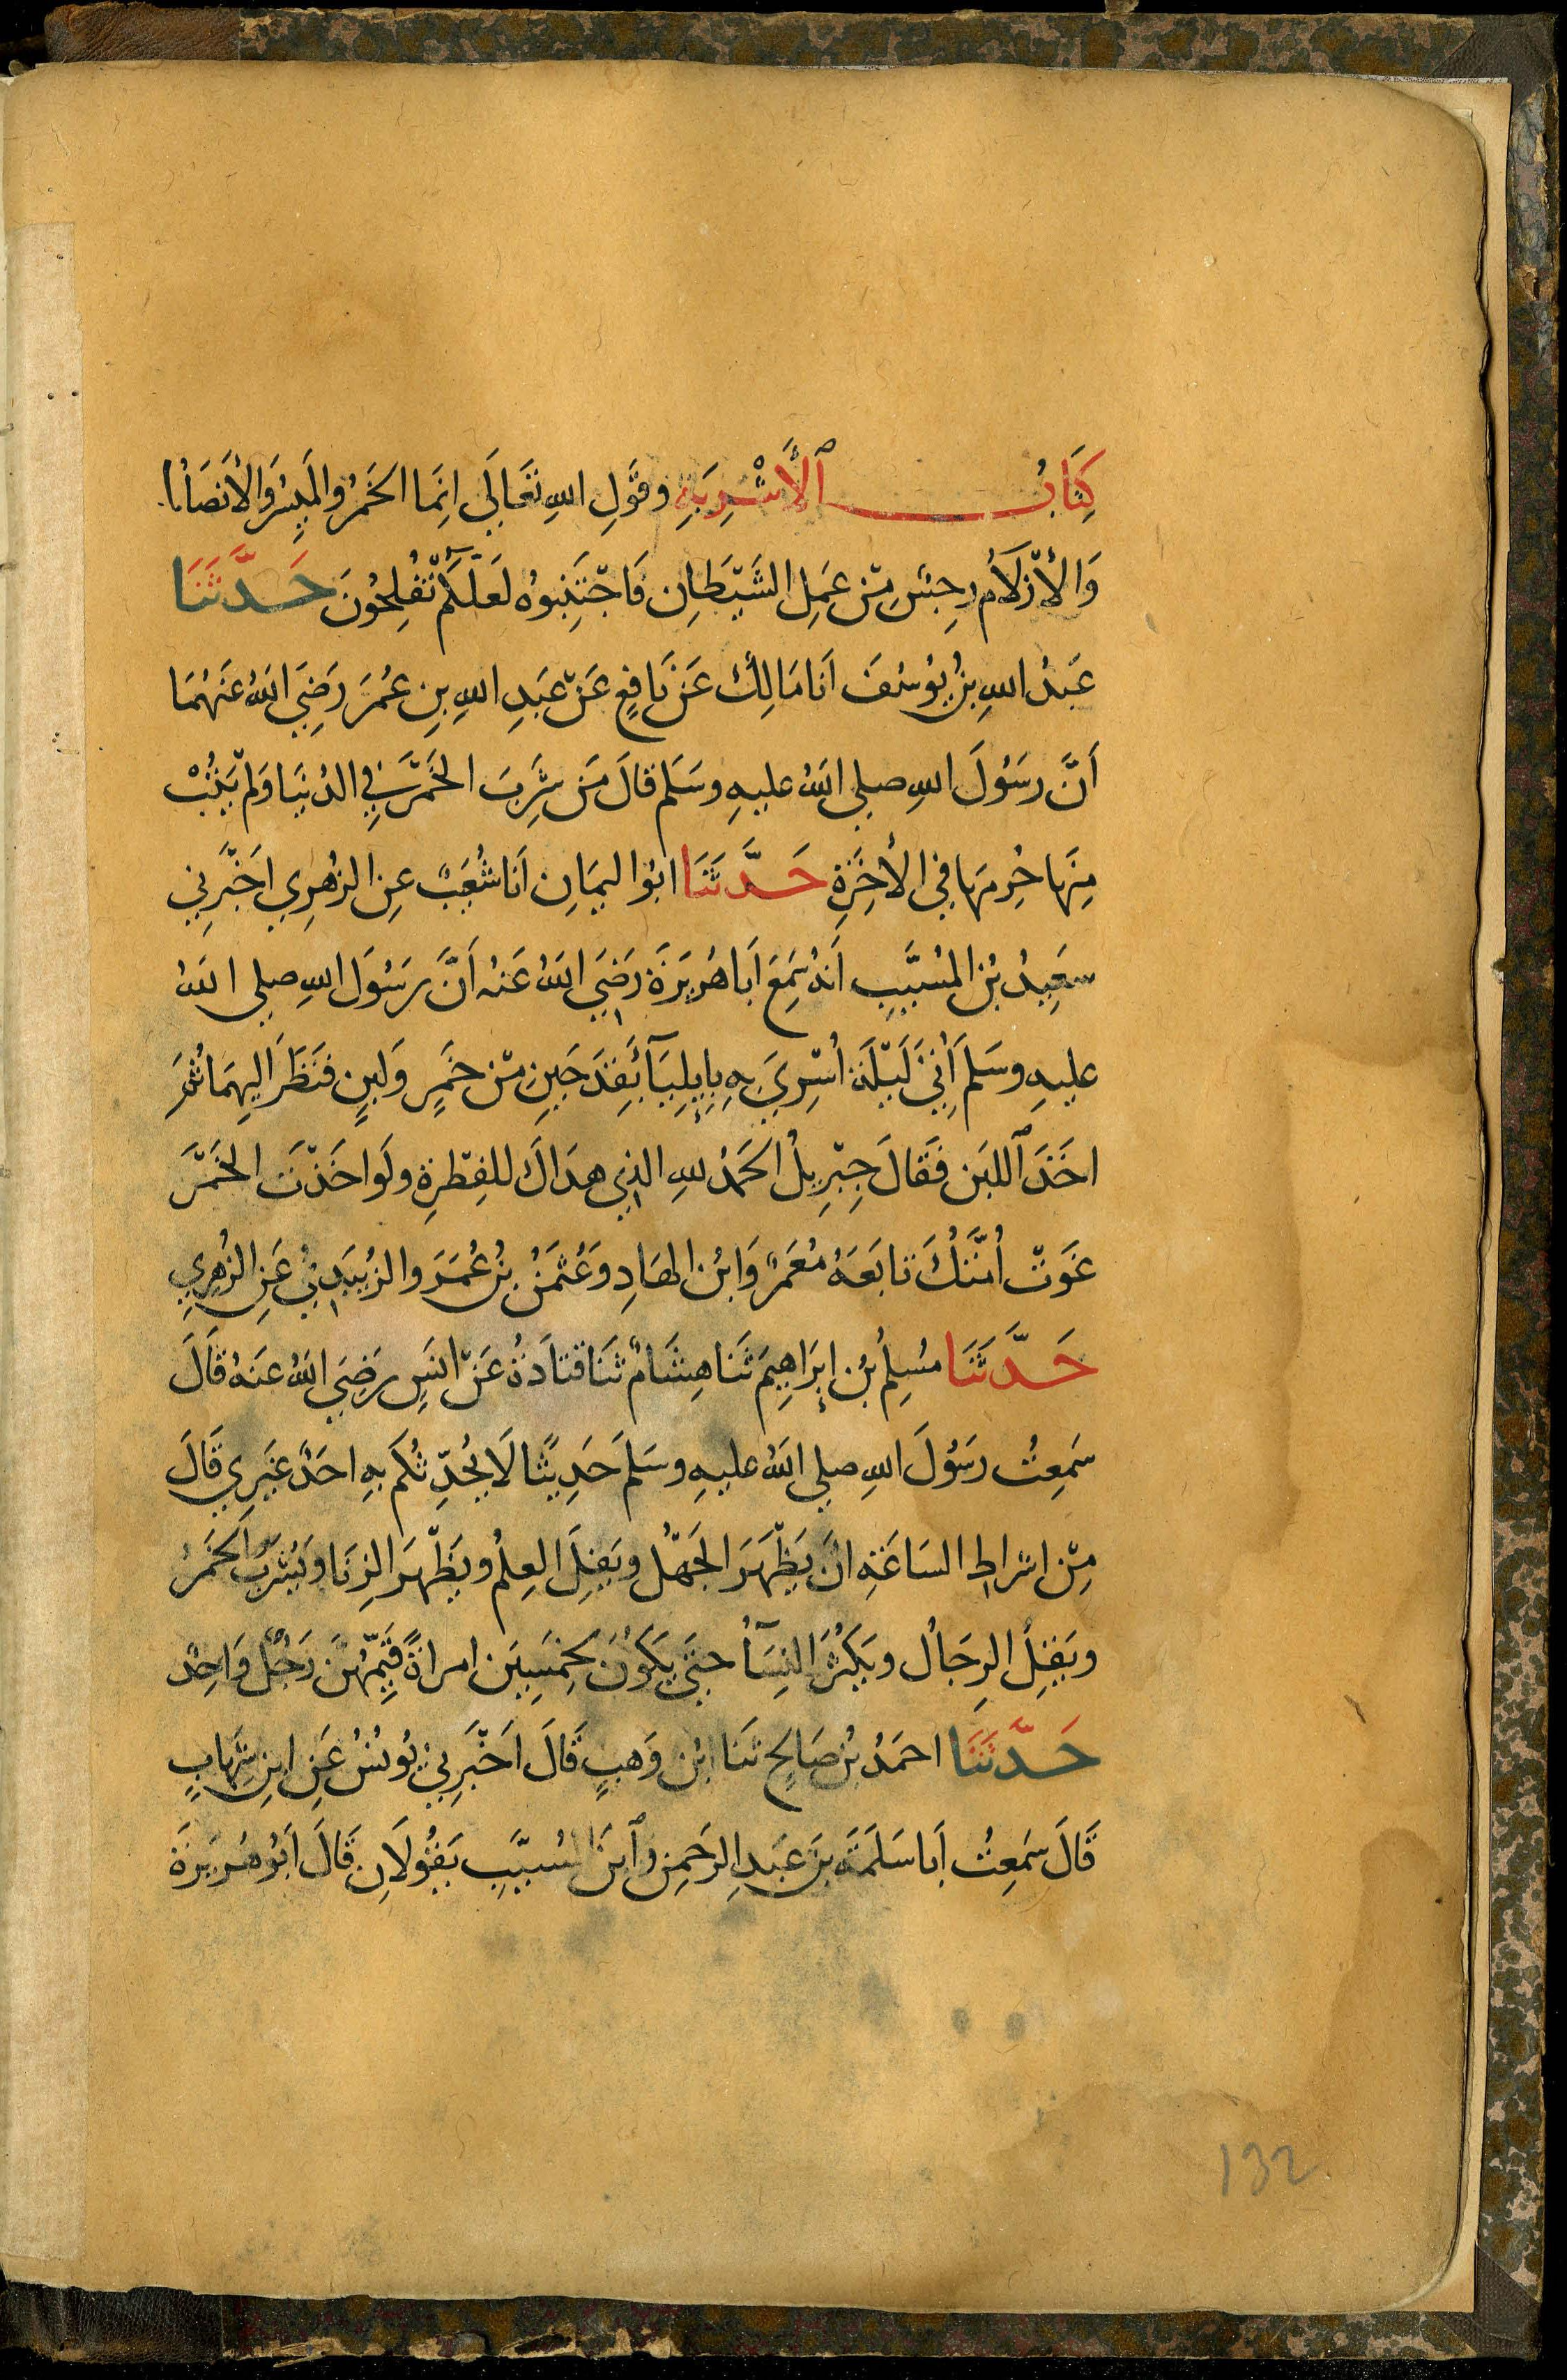 كِتَابُ ٱلْأَشْرِبَةِ وقَوْلِ اللهِ تَعَالَى اِنَّمَا الخَمْرُ والمَيسِرُ وَالأَنصَابُ
وَالأَزْلَامُ رِجسٌ مِنْ عَمَلِ الشَّيْطَانِ فَاجْتَنِبُوهُ لَعَلَّكُمْ تُفْلِحُونَ حَدَّثَنَا
عَبْدُ اللهِ بنُ يُوسُفَ اَنَا مَالِكٌ عَنْ نَافِعٍ عَنْ عَبْدِ اللهِ بنِ عُمَرَ رَضِيَ اللهُ عَنْهُمَا
أَنَّ رسَولَ اللهِ صلى اللهُ عليهِ وسَلم قالَ مَن شَرِبَ الخَمْرَ في الدُنيَا وَلم يَتُبْ
مِنْهَا حُرِمَهَا في الأخِرَةِ حَدَّثَنَا ابُو اليَمَانِ اَنَا شُعَيبٌ عنِ الزُهرِي اخْبَرَنِي
سَعِيدُ بْنُ المُسَيَّبِ اَنهُ سَمِعَ اَبَا هُرَيرَةَ رَضِيَ اللهُ عَنهُ اَنَّ رسَولَ اللهِ صلى اللهُ
عليهِ وسَلمَ أُتِيَ لَيْلَةَ اُسْرِيَ بِهِ بِإِيلِيَآءَ بِقَدَحَينِ مِنْ خَمْرٍ وَلَبنٍ فنَظَرَ اليهِمَا ثُمَّ
اخَذَ ٱللبَن فَقَالَ جِبْرِيلُ الحَمدُ للهِ الذِي هدَاكَ للفِطْرةِ ولَو اخَذْتَ الخَمْرَ
غَوَتْ اُمَّتُكَ تابَعَهُ مَعْمَرٌ وَابْنُ الهَادِ وَعُثمَنُ بْنُ عُمَرَ والزُبَيدِيُّ عَنِ الزُهرِي
حَدَّثَنَا مُسلِمُ بْنُ إبرَاهِيمَ ثَنَا هِشَامٌ ثَنَا قتَادَةُ عَنْ انَسٍ رضِيَ اللهُ عنهُ قَالَ
سَمِعتُ رسَولَ اللهِ صلى اللهُ عليهِ وسَلمَ حَدِيثًا لَا يُحَدِّثُكُم بِهِ احَدٌ غَيرِي قَالَ
مِنْ اشراطِ السَاعَةِ انْ يَظْهَرَ الجَهْلُ ويَقِلَّ العِلمُ ويَظْهَرَ الزِنَا ويُشْرَبَ الخَمرُ
ويَقِلُ الرِجَالُ ويَكْثُرَ النِسَآءُ حتَى يَكُونَ لخِمسِينَ امراةً قَيِّمُهُنَّ رَجُلٌ وَاحِدٌ
حَدَّثَنَا احمَدُ بْنُ صَالِحٍ ثنَا ابْن وَهبٍ قَالَ اَخْبَرَنِي يُونُسُ عَنِ ابنِ شِهَابٍ
قَالَ سَمِعتُ اَبا سَلَمَةَ بْنَ عَبدِ الرحَمنِ وٱبْنَ المُسيَّبِ يَقُولَانِ قَالَ اَبُو هُرَيرَةَ
132